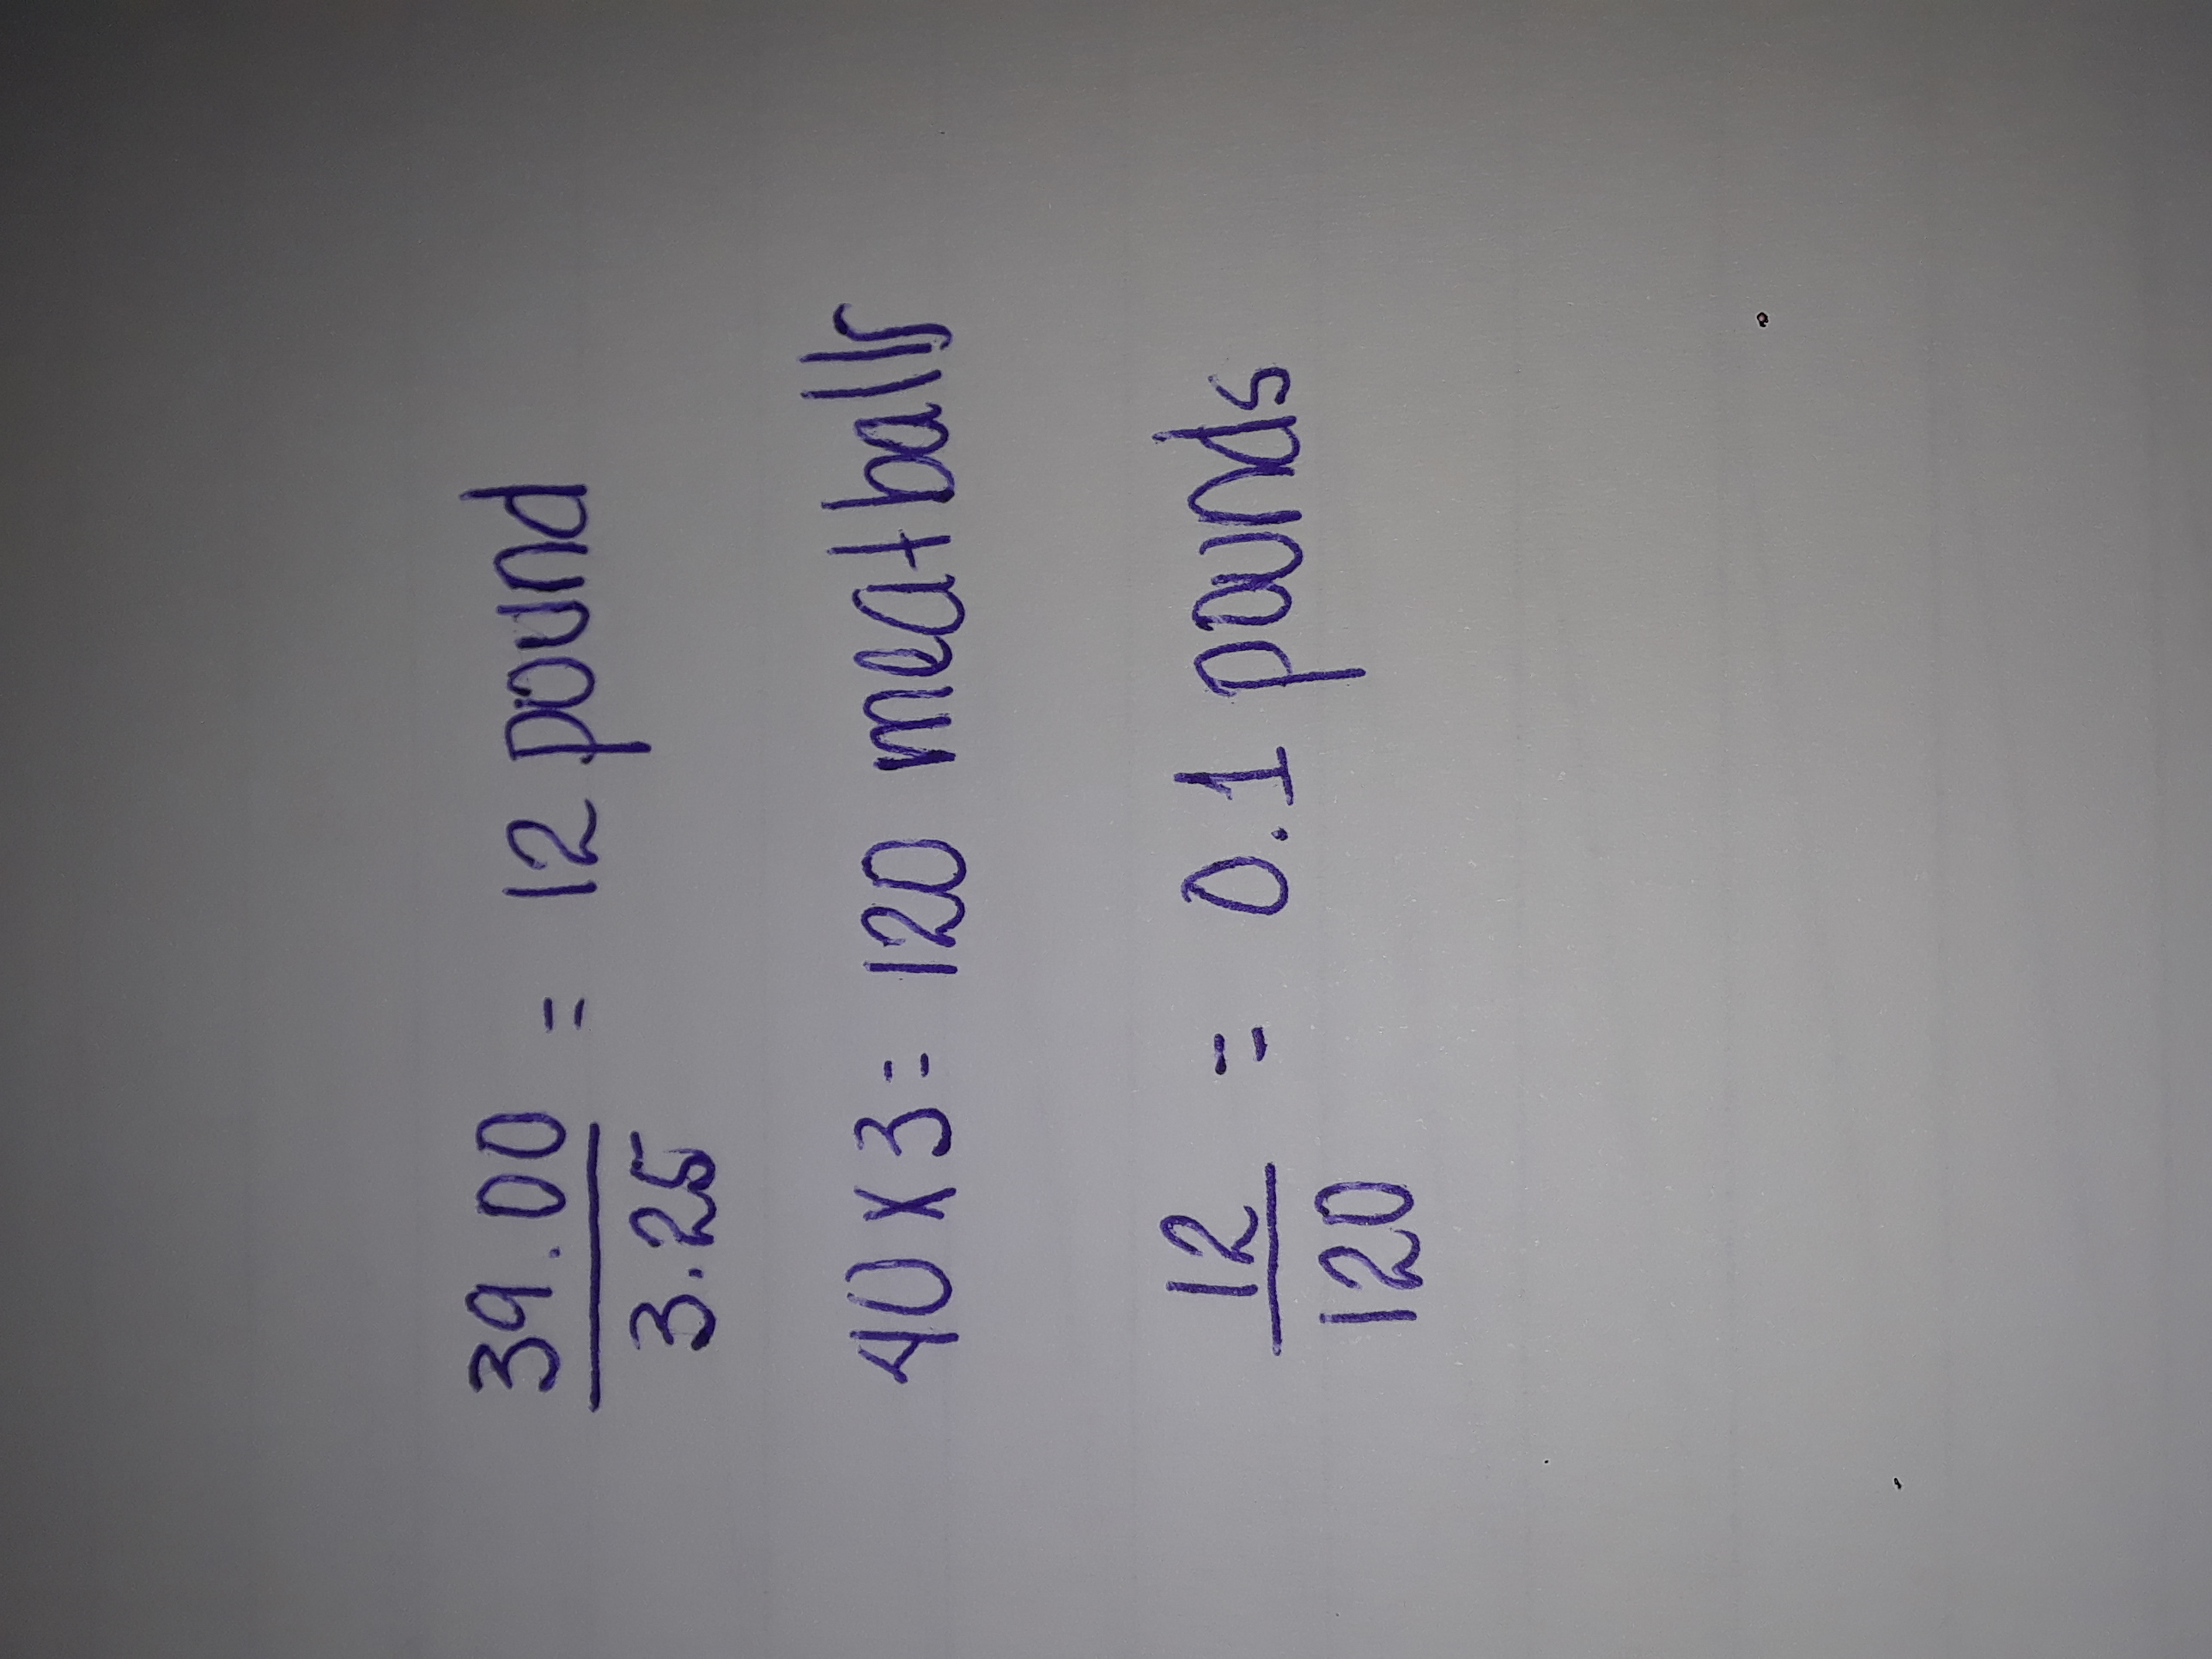 39.00 = 12 pound
3.25
40 x 3 = 120 meatballs
12 = 0.1 pounds
120